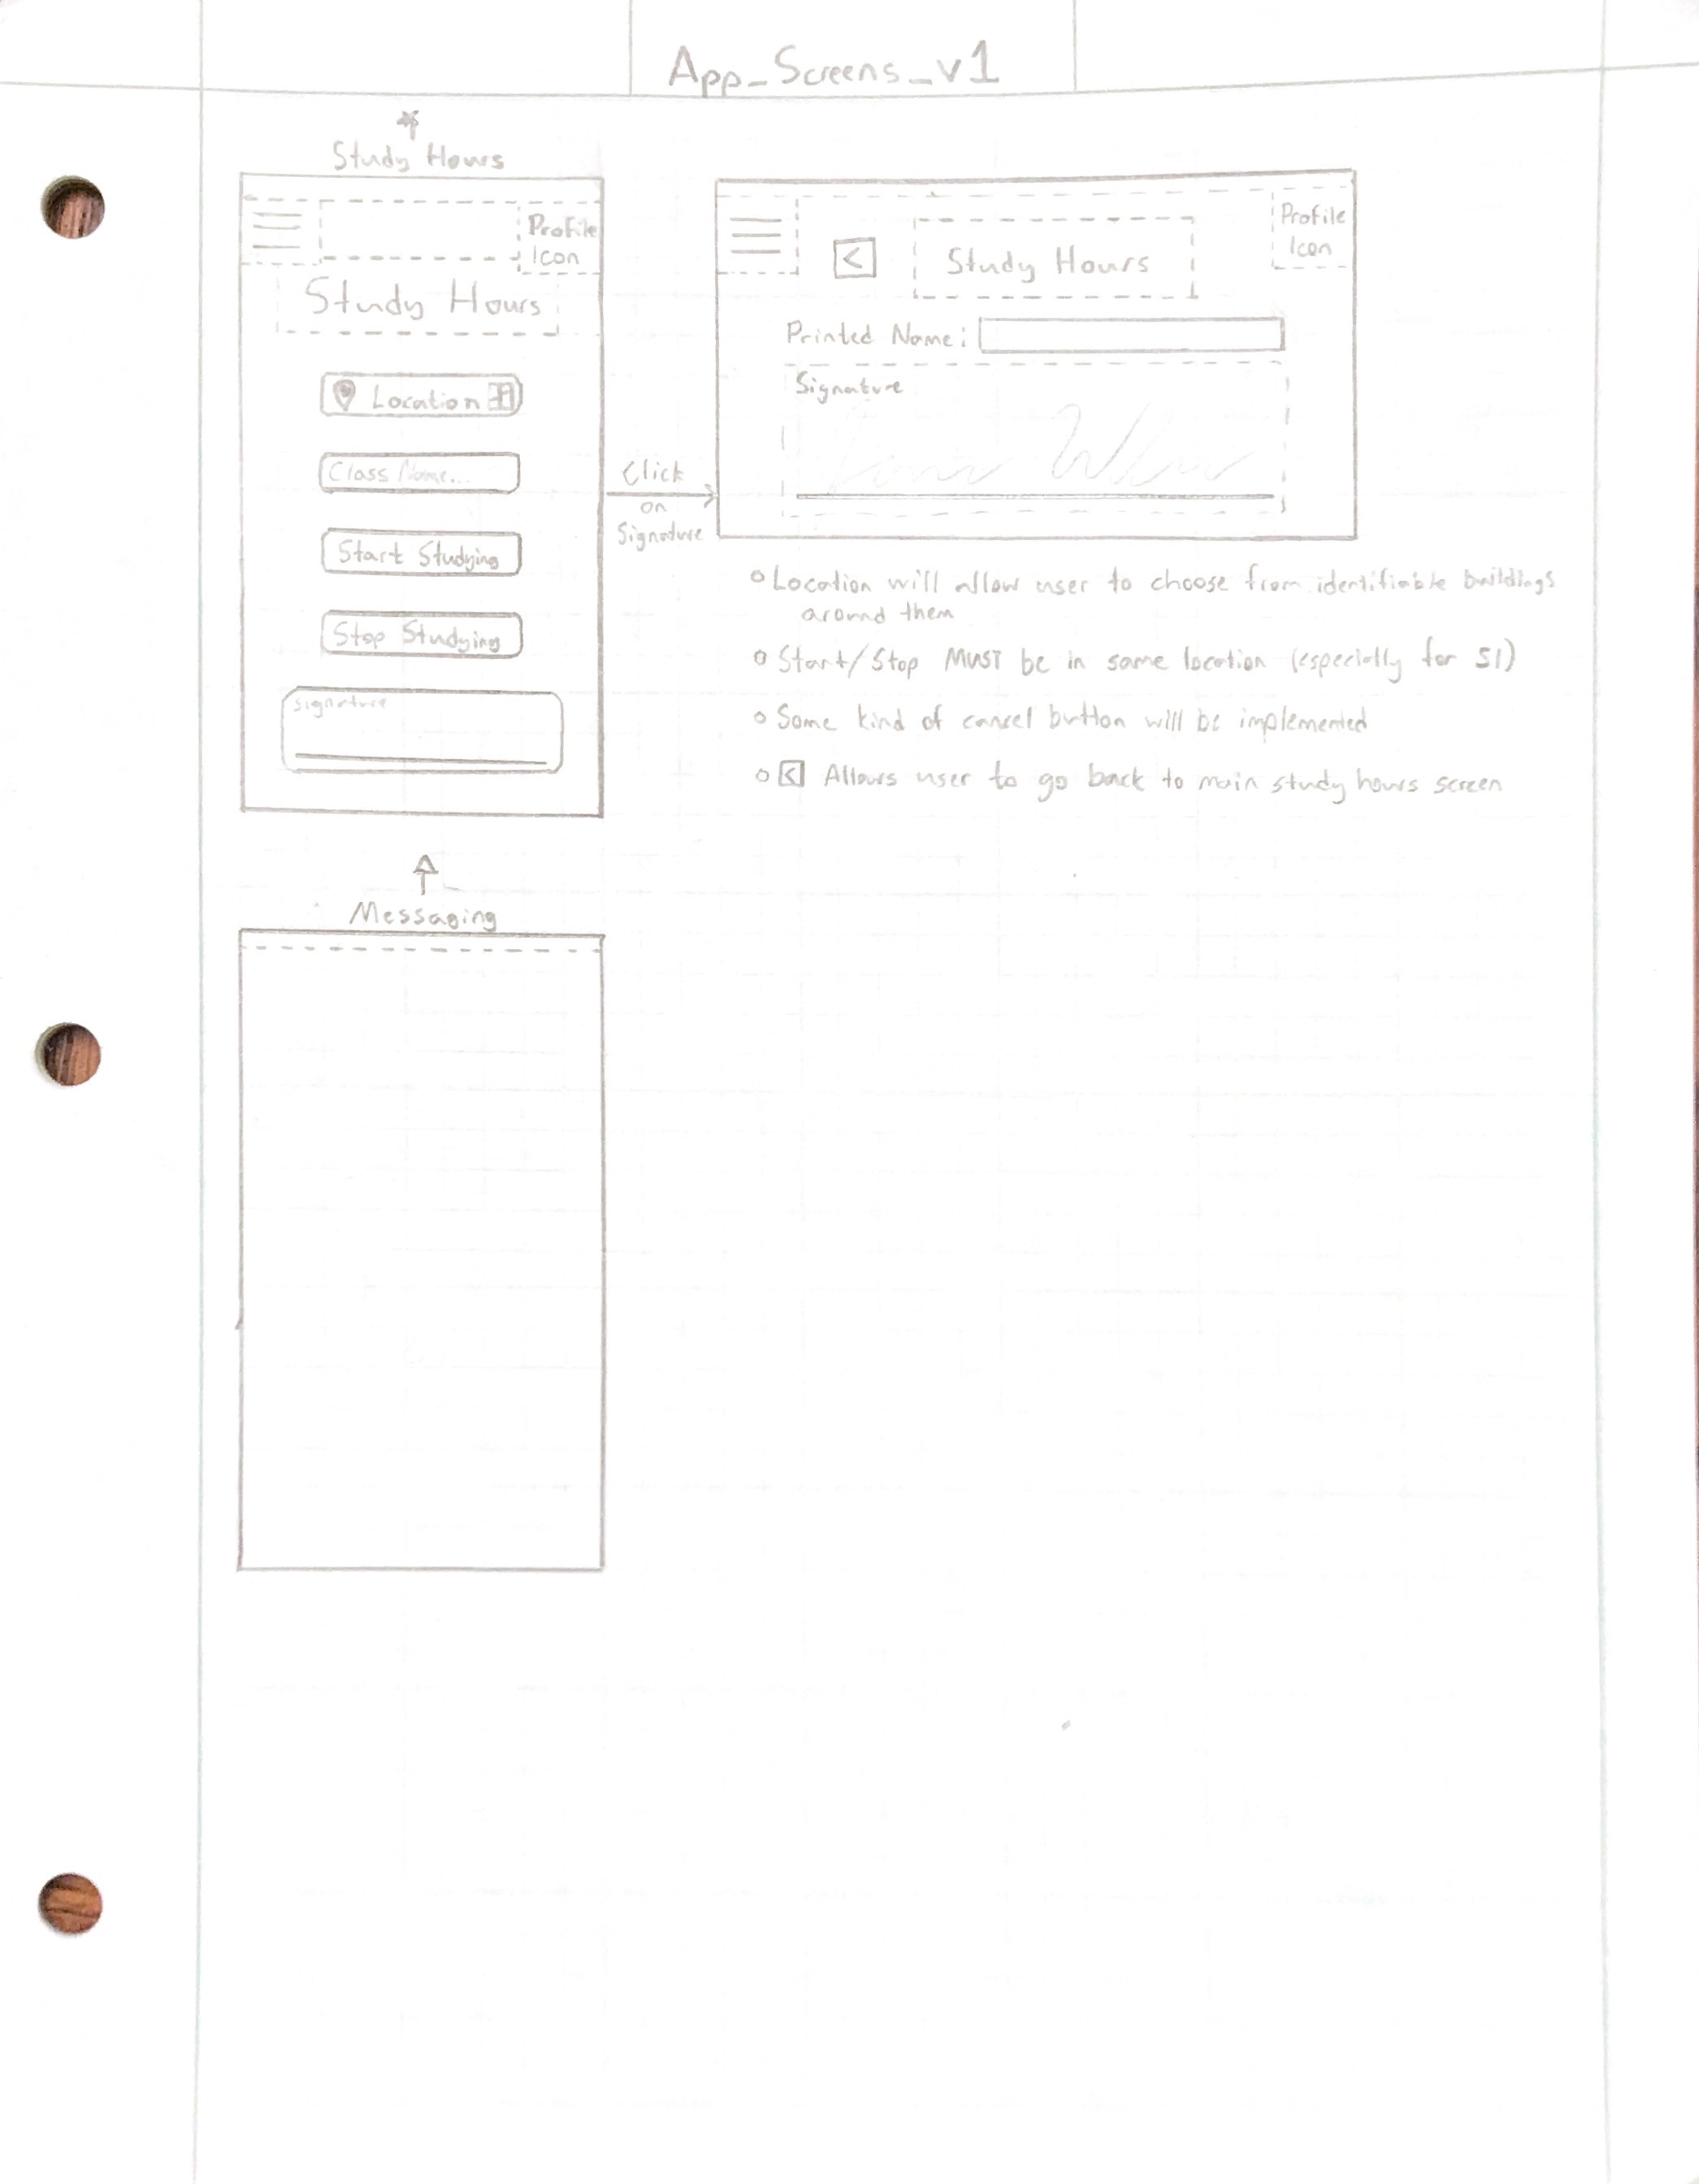 App_Screens_v1
Study Hours
Profile
Icon
Study Hours
Location
Class Name...
Start Studying
Stop Studying
Signature
Click
on
Signature
Profile
Icon
<
Study Hours
Printed Name:
Signature
Location will allow user to choose from identifiable buildings
around them
Start/Stop MUST be in same location (especially for SI)
Some kind of cancel button will be implemented
< Allows user to go back to main study hours screen
Messaging